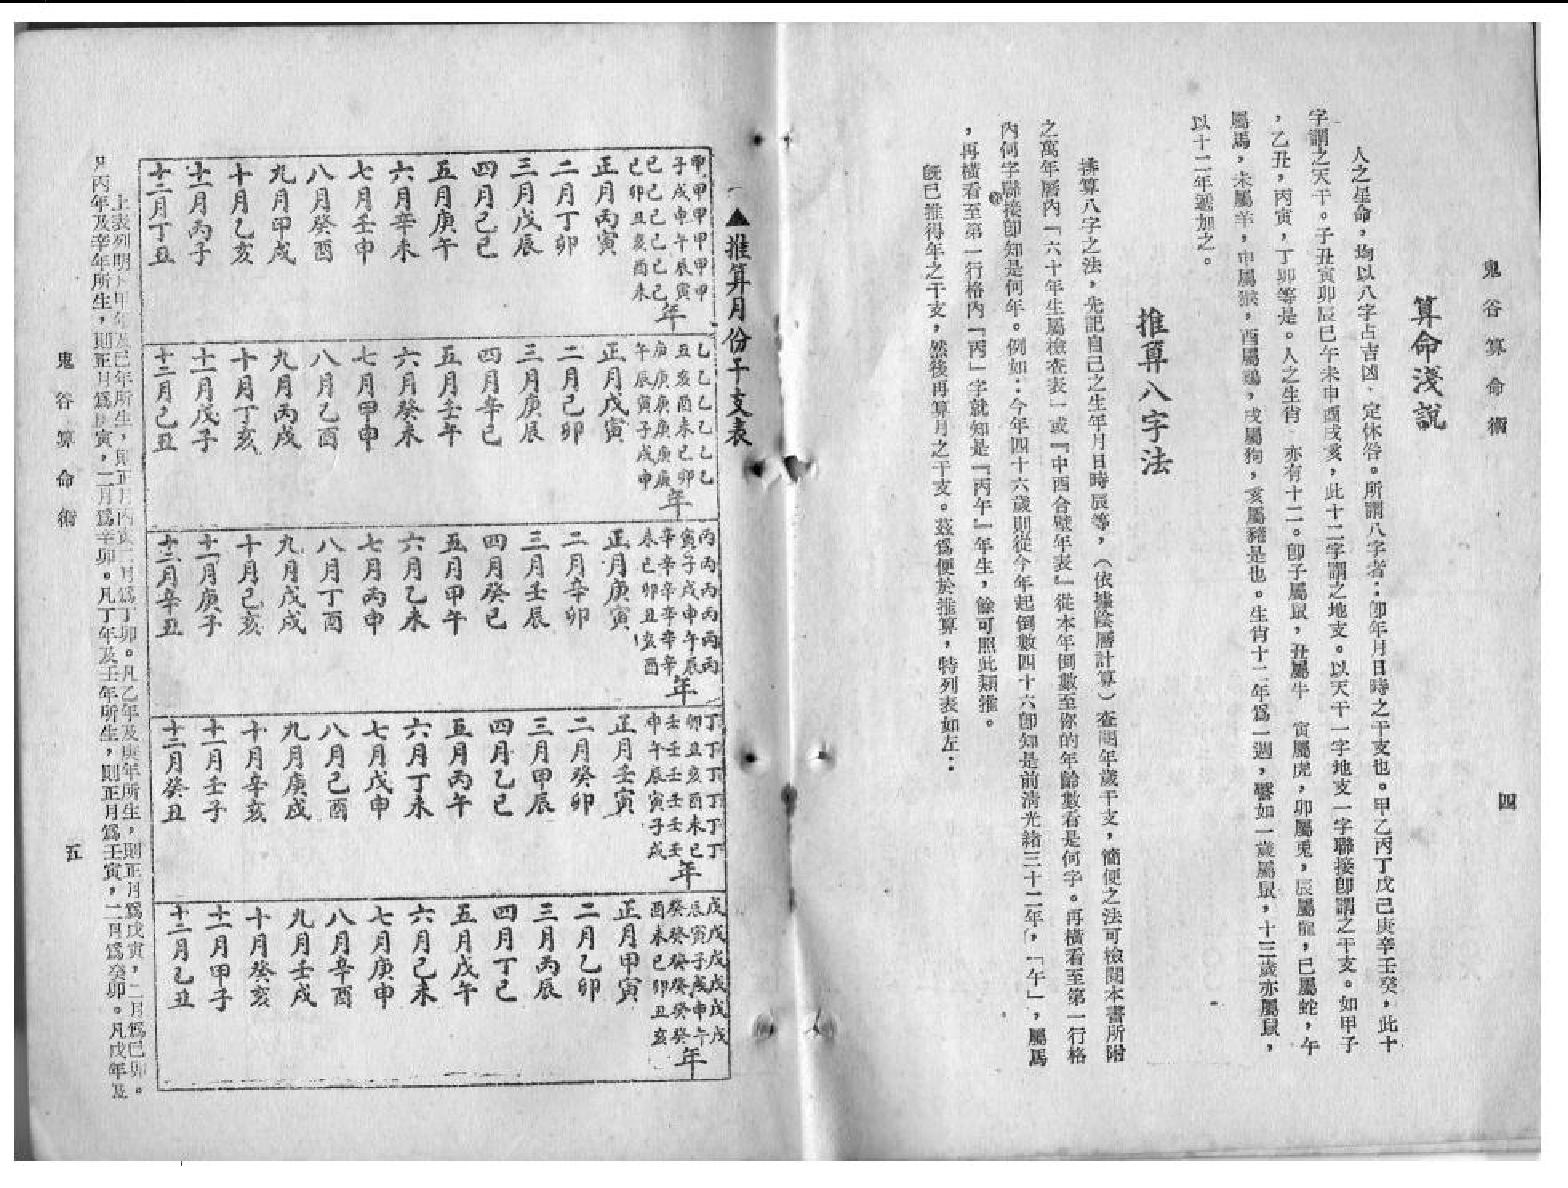 鬼谷算命術
四
算命淺說
人之星命，均以八字占吉凶，定休咎。所謂八字者：卽年月日時之干支也。甲乙丙丁戊己庚辛壬癸，此十
字謂之天干。子丑寅卯辰巳午未申酉戌亥，此十二字謂之地支。以天干一字地支一字聯接卽謂之干支。如甲子
，乙丑，丙寅，丁卯等是。人之生肖　亦有十二。卽子屬鼠，丑屬牛　寅屬虎，卯屬兎，辰屬龍，巳屬蛇，午
屬馬，未屬羊，申屬猴，酉屬鷄，戌屬狗，亥屬豬是也。生肖十二年爲一週，譬如一歲屬鼠，十三歲亦屬鼠，
以十二年遞加之。
推算八字法
推算八字之法，先記自己之生年月日時辰等，（依據陰曆計算）查明年歲干支，簡便之法可檢閱本書所附
之萬年曆內「六十年生屬檢查表」或『中西合壁年表』從本年倒數至你的年齡數看是何字。再橫看至第一行格
內何字聯接卽知是何年。例如：今年四十六歲則從今年起倒數四十六卽知是前淸光緖三十二年，「午」，屬馬
，再橫看至第一行格內「丙」字就知是『丙午』年生，餘可照此類推。
旣已推得年之干支，然後再算月之干支。茲爲便於推算，特列表如左：
▲推算月份干支表
甲甲甲甲甲甲
子戌申午辰寅
己己己己己己
巳卯丑亥酉未
年
正月丙寅
二月丁卯
三月戊辰
四月己巳
五月庚午
六月辛未
七月壬申
八月癸酉
九月甲戌
十月乙亥
十一月丙子
十二月丁丑
乙乙乙乙乙乙
丑亥酉未巳卯
庚庚庚庚庚庚
午辰寅子戌申
年
正月戊寅
二月己卯
三月庚辰
四月辛巳
五月壬午
六月癸未
七月甲申
八月乙酉
九月丙戌
十月丁亥
十一月戊子
十二月己丑
丙丙丙丙丙丙
寅子戌申午辰
辛辛辛辛辛辛
未巳卯丑亥酉
年
正月庚寅
二月辛卯
三月壬辰
四月癸巳
五月甲午
六月乙未
七月丙申
八月丁酉
九月戊戌
十月己亥
十一月庚子
十二月辛丑
丁丁丁丁丁丁
卯丑亥酉未巳
壬壬壬壬壬壬
申午辰寅子戌
年
正月壬寅
二月癸卯
三月甲辰
四月乙巳
五月丙午
六月丁未
七月戊申
八月己酉
九月庚戌
十月辛亥
十一月壬子
十二月癸丑
戊戊戊戊戊戊
辰寅子戌申午
癸癸癸癸癸癸
酉未巳卯丑亥
年
正月甲寅
二月乙卯
三月丙辰
四月丁巳
五月戊午
六月己未
七月庚申
八月辛酉
九月壬戌
十月癸亥
十一月甲子
十二月乙丑
上表列明凡甲年及己年所生，則正月丙寅二月爲丁卯。凡乙年及庚年所生，則正月爲戊寅，二月爲己卯。
凡丙年及辛年所生，則正月爲庚寅，二月爲辛卯。凡丁年及壬年所生，則正月爲壬寅，二月爲癸卯。凡戊年及
鬼谷算命術
五